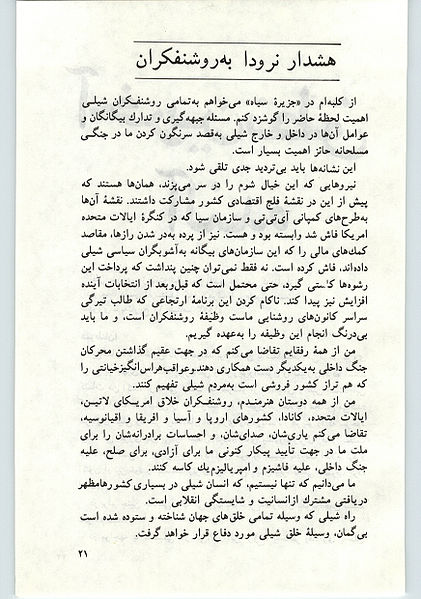 هشدار نرودا به‌روشنفکران
از کلبه‌ام در «جزیرهٔ سیاه» می‌خواهم به‌تمامی روشنفکران شیلی
اهمیت لحظهٔ حاضر را گوشزد کنم. مسئله جبهه‌گیری و تدارك بیگانگان و
عوامل آن‌ها در داخل و خارج شیلی به‌قصد سرنگون کردن ما در جنگی
مسلحانه حائز اهمیت بسیار است.
این نشانه‌ها باید بی‌تردید جدی تلقی شود.
نیروهایی که این خیال شوم را در سر می‌پزند، همان‌ها هستند که
پیش از این در نقشهٔ فلج اقتصادی کشور مشارکت داشتند. نقشهٔ آن‌ها
به‌طرح‌های کمپانی آی‌تی‌تی و سازمان سیا که در کنگرهٔ ایالات متحده
امریکا فاش شد وابسته بود و هست. نیز از پرده به‌در شدن رازها، مقاصد
کمك‌های مالی را که این سازمان‌های بیگانه به‌آشوبگران سیاسی شیلی
داده‌اند، فاش کرده است. نه فقط نمی‌توان چنین پنداشت که پرداخت این
رشوه‌ها کاستی گیرد، حتی محتمل است که قبل‌وبعد از انتخابات آینده
افزایش نیز پیدا کند. ناکام کردن این برنامهٔ ارتجاعی که طالب تیرگی
سراسر کانون‌های روشنایی ماست وظیفهٔ روشنفکران است، و ما باید
بی‌درنگ انجام این وظیفه را به‌عهده گیریم.
من از همهٔ رفقایم تقاضا می‌کنم که در جهت عقیم گذاشتن محرکان
جنگ داخلی به‌یکدیگر دست همکاری دهند.وعواقب‌هراس‌انگیزخیانتی را
که هم تراز کشور فروشی است به‌مردم شیلی تفهیم کنند.
من از همه دوستان هنرمندم، روشنفکران خلاق امریکای لاتین،
ایالات متحده، کانادا، کشورهای اروپا و آسیا و افریقا و اقیانوسیه،
تقاضا می‌کنم یاری‌شان، صدای‌شان، و احساسات برادرانه‌شان را برای
ملت ما در جهت تأیید پیکار کنونی ما برای آزادی، برای صلح، علیه
جنگ داخلی، علیه فاشیزم و امپریالیزم‌یك کاسه کنند.
ما می‌دانیم که تنها نیستیم، که انسان شیلی در بسیاری کشورهامظهر
دریافتی مشترك ازانسانیت و شایستگی انقلابی است.
راه شیلی که وسیله تمامی خلق‌های جهان شناخته و ستوده شده است
بی‌گمان، وسیلهٔ خلق شیلی مورد دفاع قرار خواهد گرفت.
۲۱